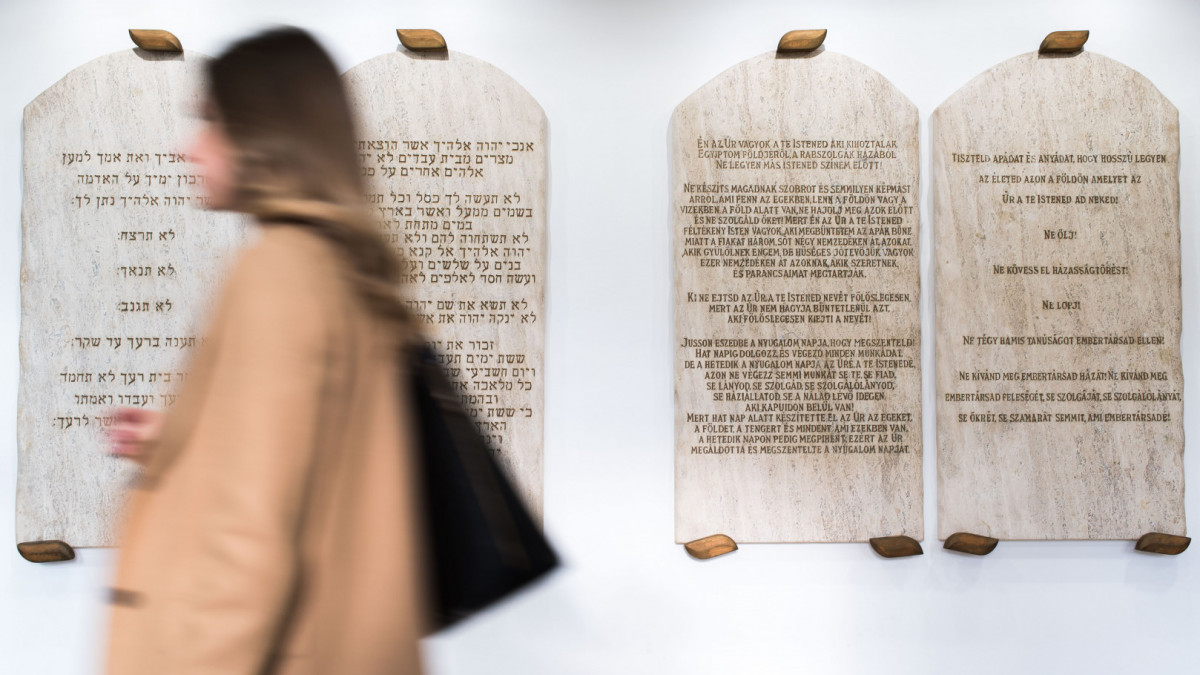 אנכי יהוה אלהיך אשר
מצרים מבית עבדים לא
אלהים אחרים על
לא תעשה לך פסל וכל
בשמים ממעל ואשר בארץ
במים מתחת
לא תשתחוה להם ולא
יהוה אלהיך אל קנא
בנים על שלשים
ועשה חסד לאלפים
לא תשא את שם יהוה
לא ינקה יהוה את
זכור את
ששת ימים
ויום השביעי
כל מלאכה
כי ששת
הארץ
אביך ואת אמך למען
יארכון ימיך על האדמה
אשר יהוה אלהיך נתן לך:
לא תרצח:
לא תנאף:
לא תגנב:
לא תענה ברעך עד שקר:
בית רעך לא תחמד
רעך ועבדו ואמתו
לרעך:
ÉN AZ ÚR VAGYOK A TE ISTENED AKI KIHOZTALAK
EGYIPTOM FÖLDJÉRŐL A RABSZOLGÁK HÁZÁBÓL
NE LEGYEN MÁS ISTENED SZÍNEM ELŐTT!
NE KÉSZÍTS MAGADNAK SZOBROT ÉS SEMMILYEN KÉPMÁST
ARRÓL, AMI FENN AZ EGEKBEN, LENN A FÖLDÖN VAGY A
VIZEKBEN, A FÖLD ALATT VAN, NE HAJOLJ MEG AZOK ELŐTT
ÉS NE SZOLGÁLD ŐKET! MERT ÉN AZ ÚR A TE ISTENED
FÉLTÉKENY ISTEN VAGYOK, AKI MEGBÜNTETEM AZ APÁK BŰNE
MIATT A FIAKAT HÁROM, SŐT NÉGY NEMZEDÉKEN ÁT, AZOKAT,
AKIK GYŰLÖLNEK ENGEM, DE HŰSÉGES JÓTEVŐJÜK VAGYOK
EZER NEMZEDÉKEN ÁT AZOKNAK, AKIK SZERETNEK,
ÉS PARANCSAIMAT MEGTARTJÁK.
KI NE EJTSD AZ ÚR, A TE ISTENED NEVÉT FÖLÖSLEGESEN,
MERT AZ ÚR NEM HAGYJA BÜNTETLENÜL AZT,
AKI FÖLÖSLEGESEN KIEJTI A NEVÉT!
JUSSON ESZEDBE A NYUGALOM NAPJA, HOGY MEGSZENTELD!
HAT NAPIG DOLGOZZ, ÉS VÉGEZD MINDEN MUNKÁDAT,
DE A HETEDIK A NYUGALOM NAPJA AZ ÚRÉ A TE ISTENEDÉ,
AZON NE VÉGEZZ SEMMI MUNKÁT SE TE, SE FIAD,
SE LÁNYOD, SE SZOLGÁD, SE SZOLGÁLÓLÁNYOD,
SE HÁZIÁLLATOD, SE A NÁLAD LÉVŐ IDEGEN,
AKI KAPUIDON BELÜL VAN!
MERT HAT NAP ALATT KÉSZÍTETTE EL AZ ÚR AZ EGEKET,
A FÖLDET, A TENGERT ÉS MINDENT, AMI EZEKBEN VAN,
A HETEDIK NAPON PEDIG MEGPIHENT, EZÉRT AZ ÚR
MEGÁLDOTTA ÉS MEGSZENTELTE A NYUGALOM NAPJÁT.
TISZTELD APÁDAT ÉS ANYÁDAT, HOGY HOSSZÚ LEGYEN
AZ ÉLETED AZON A FÖLDÖN AMELYET AZ
ÚR A TE ISTENED AD NEKED!
NE ÖLJ!
NE KÖVESS EL HÁZASSÁGTÖRÉST!
NE LOPJ!
NE TÉGY HAMIS TANÚSÁGOT EMBERTÁRSAD ELLEN!
NE KÍVÁND MEG EMBERTÁRSAD HÁZÁT! NE KÍVÁND MEG
EMBERTÁRSAD FELESÉGÉT, SE SZOLGÁJÁT, SE SZOLGÁLÓLÁNYÁT,
SE ÖKRÉT, SE SZAMARÁT SEMMIT, AMI EMBERTÁRSADÉ!